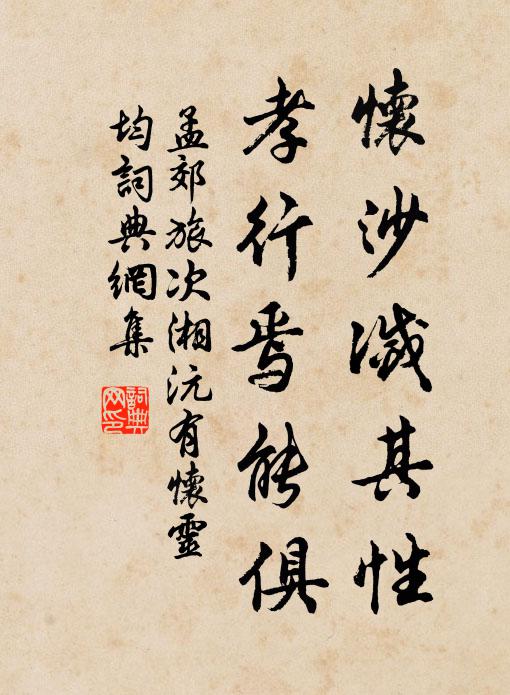 懷沙滅其性
孝行焉能俱
孟郊旅次湘沅有懷靈
均詞典網集
詞典网印